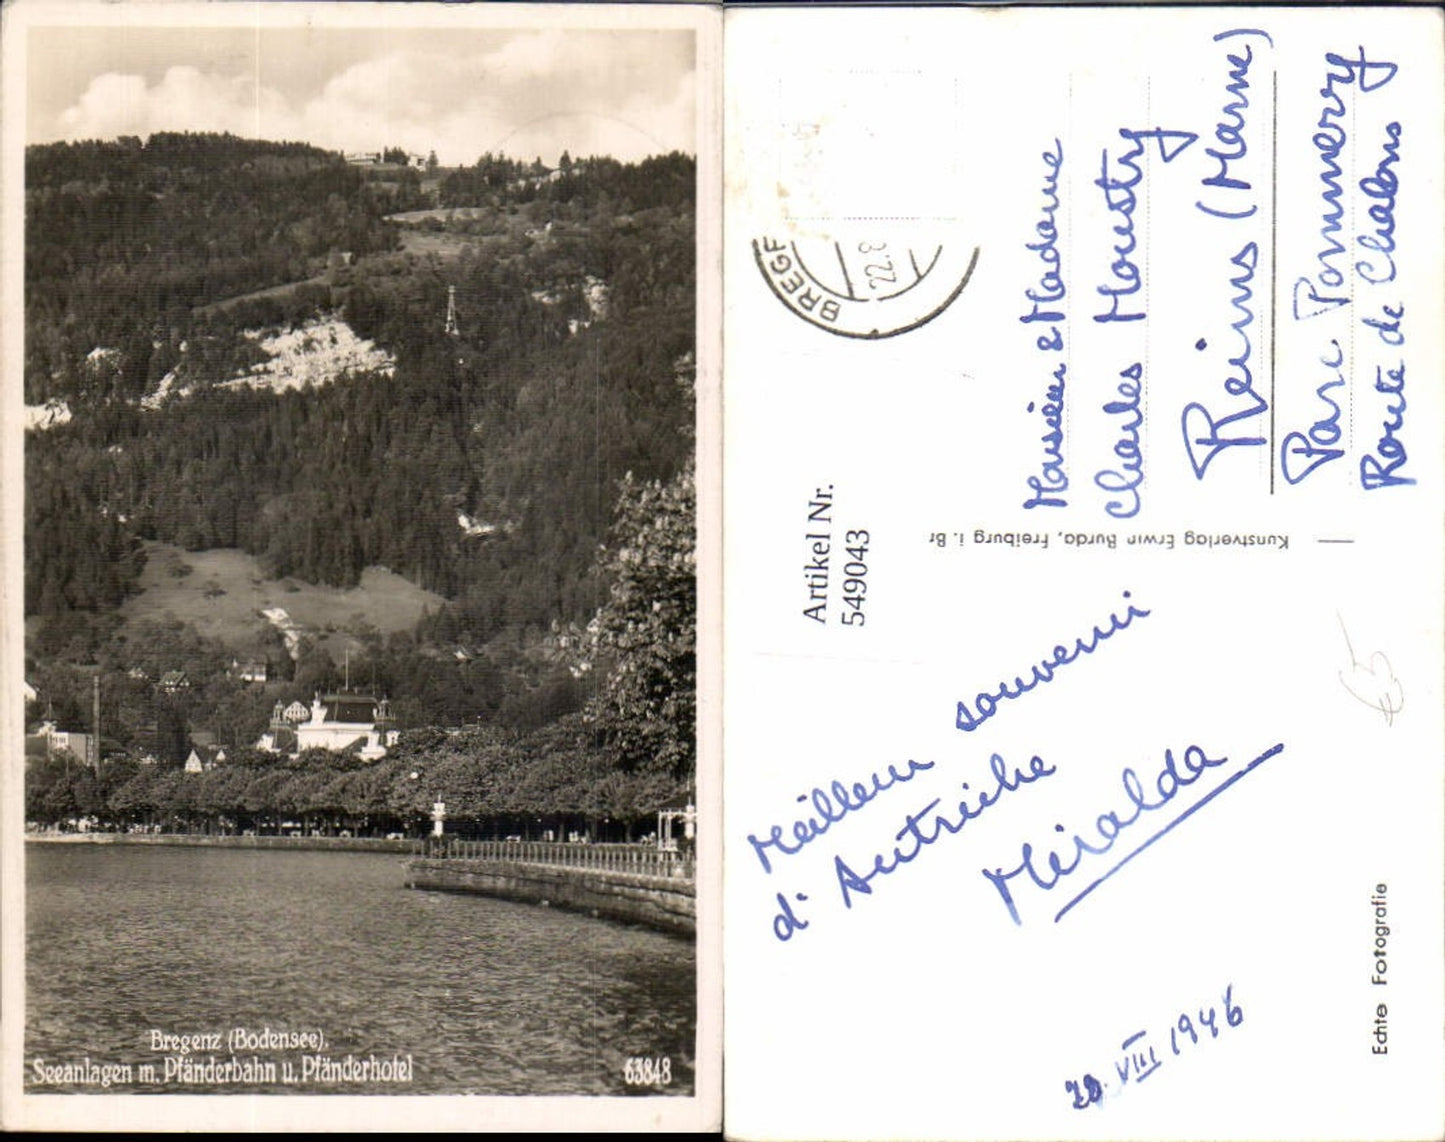 Bregenz (Bodensee).
Seeanlagen m. Pfänderbahn u. Pfänderhotel
63848
BREGE
22.8
Monsieur & Madame
Charles Moustry
Reims (Marne)
Parc Pommery
Route de Chalons
Artikel Nr.
549043
Kunstverlag Erwin Burda, Freiburg i. Br
Meilleur souvenir
d'Autriche
Miralda
20 VIII 1946
Echte Fotografie